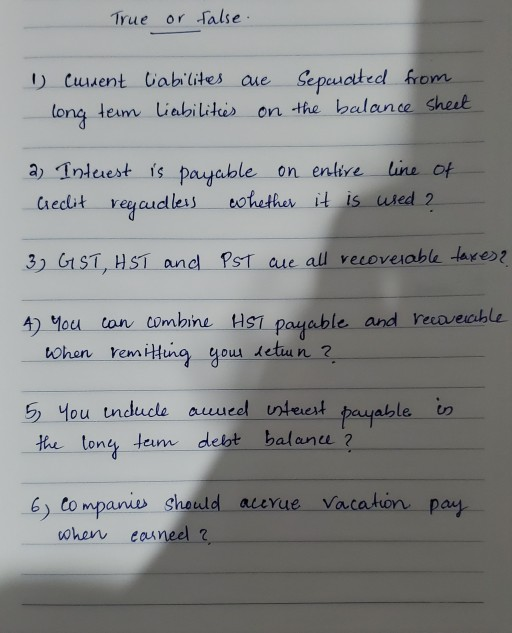 True or False.
1) Current liabilites are Separated from
long term liabilities on the balance sheet
2) Interest is payable on entire line of
Credit regardless whether it is used ?
3) GST, HST and PST are all recoverable taxes?
4) You can combine HST payable and recoverable
when remitting your return ?
5) You include accrued interest payable in
the long term debt balance ?
6) Companies should accrue vacation pay
when earned ?